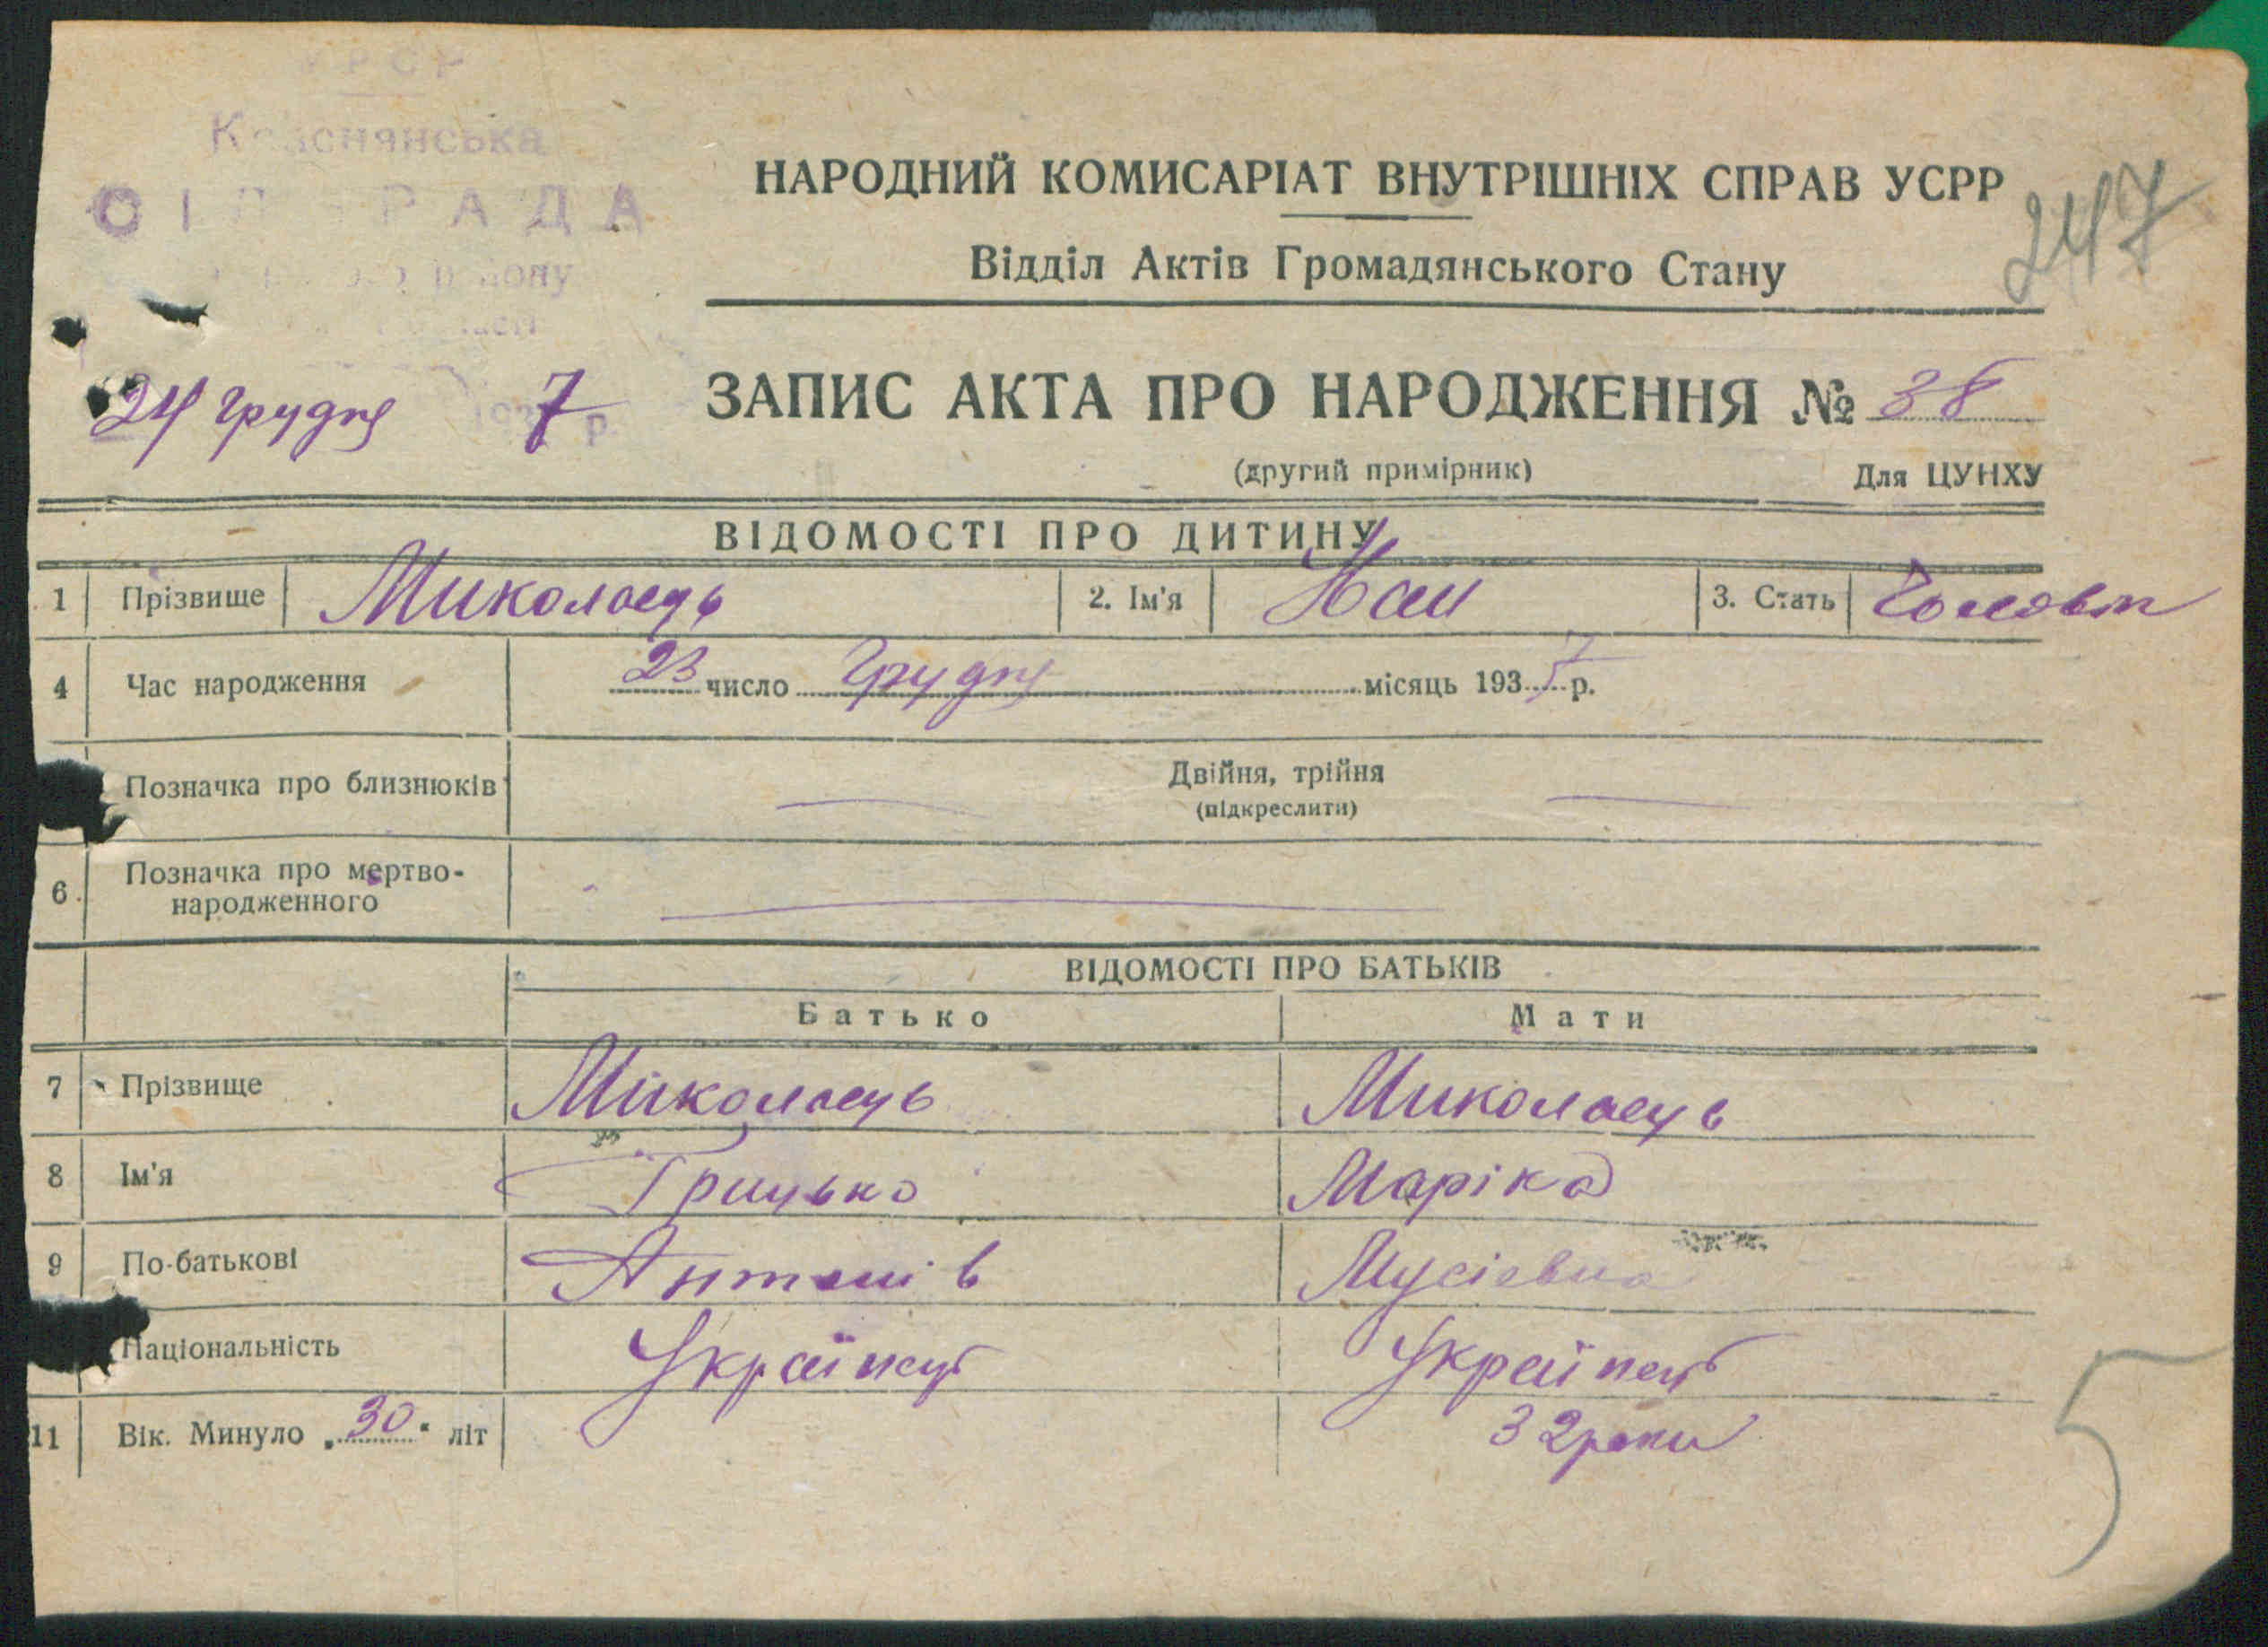 УРСР
СІЛЬРАДА
району
24 Грудня 1937 р.
247
НАРОДНИЙ КОМИСАРІАТ ВНУТРІШНІХ СПРАВ УСРР
Відділ Актів Громадянського Стану
ЗАПИС АКТА ПРО НАРОДЖЕННЯ № 38
(другий примірник) Для ЦУНХУ
ВІДОМОСТІ ПРО ДИТИНУ
1 Прізвище Миколаець 2. Ім'я 3. Стать Чоловт
4 Час народження 23 число Грудня місяць 1937 р.
Позначка про близнюків Двійня, трійня
(підкреслити)
6. Позначка про мертво-
народженного
ВІДОМОСТІ ПРО БАТЬКІВ
Батько Мати
7 Прізвище Миколаець Миколаець
8 Ім'я Грицько Маріка
9 По-батькові Антонів Мусіевна
Національність Українець Українець
11 Вік. Минуло „30" літ 32 роки
5